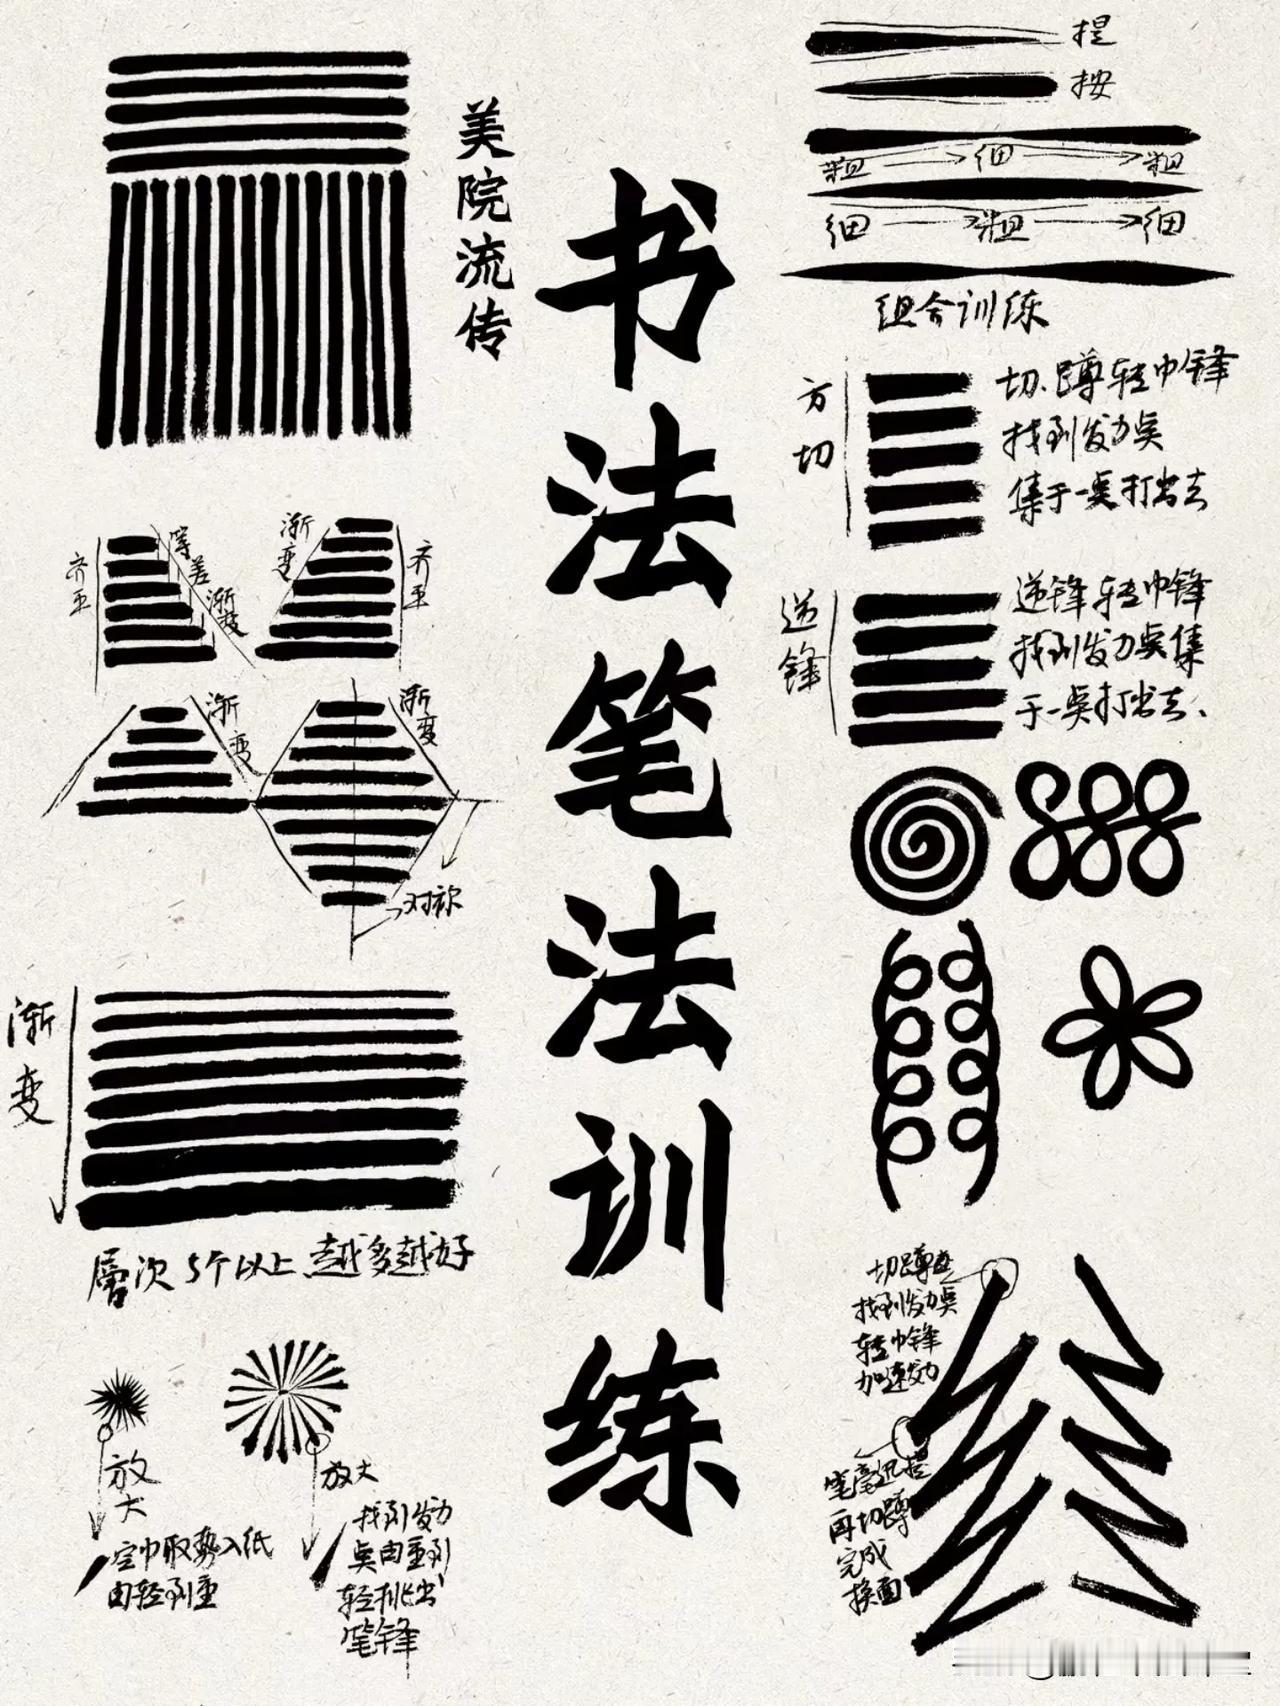 美院流传
书法笔法训练
提
按
粗 细 粗
细 粗 细
组合训练
方切
切、蹲转中锋
找到发力点
集于一点打出去
逆锋
逆锋转中锋
找到发力点集
于一点打出去、
齐平
等差渐变
渐变
齐平
渐变
渐变
对称
渐变
层次5个以上越多越好
放大
空中取势入纸
由轻到重
放大
找到发力
点由重到
轻挑出
笔锋
切蹲
找到发力点
转中锋
加速发力
笔毫迅提
再切蹲
完成
换面